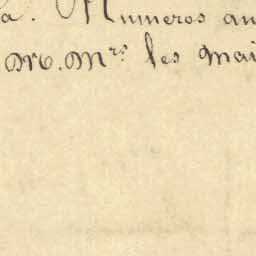 a. Numeros au
M. Mrs les mai